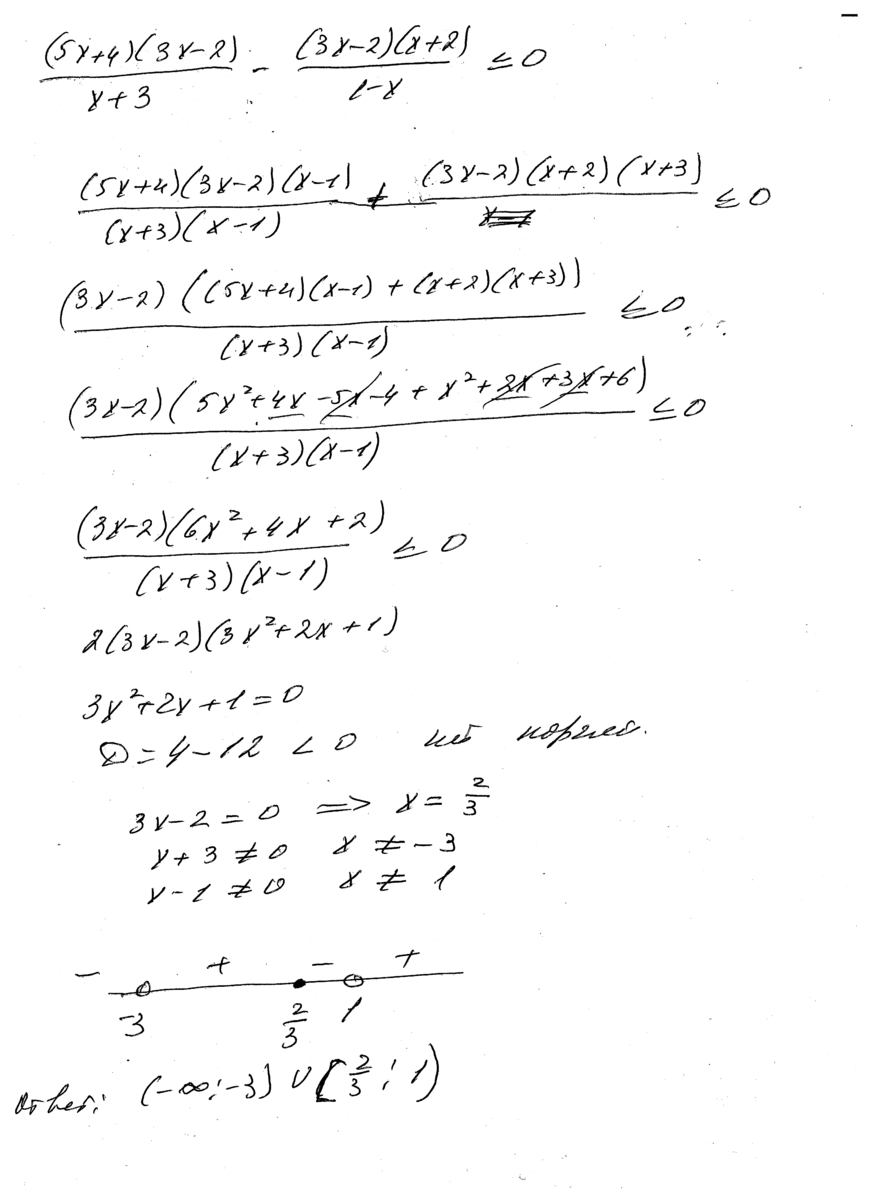 (5x+4)(3x-2)/(x+3) - (3x-2)(x+2)/(1-x) ≤ 0
(5x+4)(3x-2)(x-1)/(x+3)(x-1) + (3x-2)(x+2)(x+3) ≤ 0
(3x-2)((5x+4)(x-1) + (x+2)(x+3))/(x+3)(x-1) ≤ 0
(3x-2)(5x²+4x-5x-4+x²+2x+3x+6)/(x+3)(x-1) ≤ 0
(3x-2)(6x²+4x+2)/(x+3)(x-1) ≤ 0
2(3x-2)(3x²+2x+1)
3x²+2x+1=0
D=4-12 < 0 нет корней.
3x-2=0 => x= 2/3
x+3≠0 x≠-3
x-1≠0 x≠1
- + - +
-3 2/3 1
Ответ: (-∞;-3)∪[2/3;1)